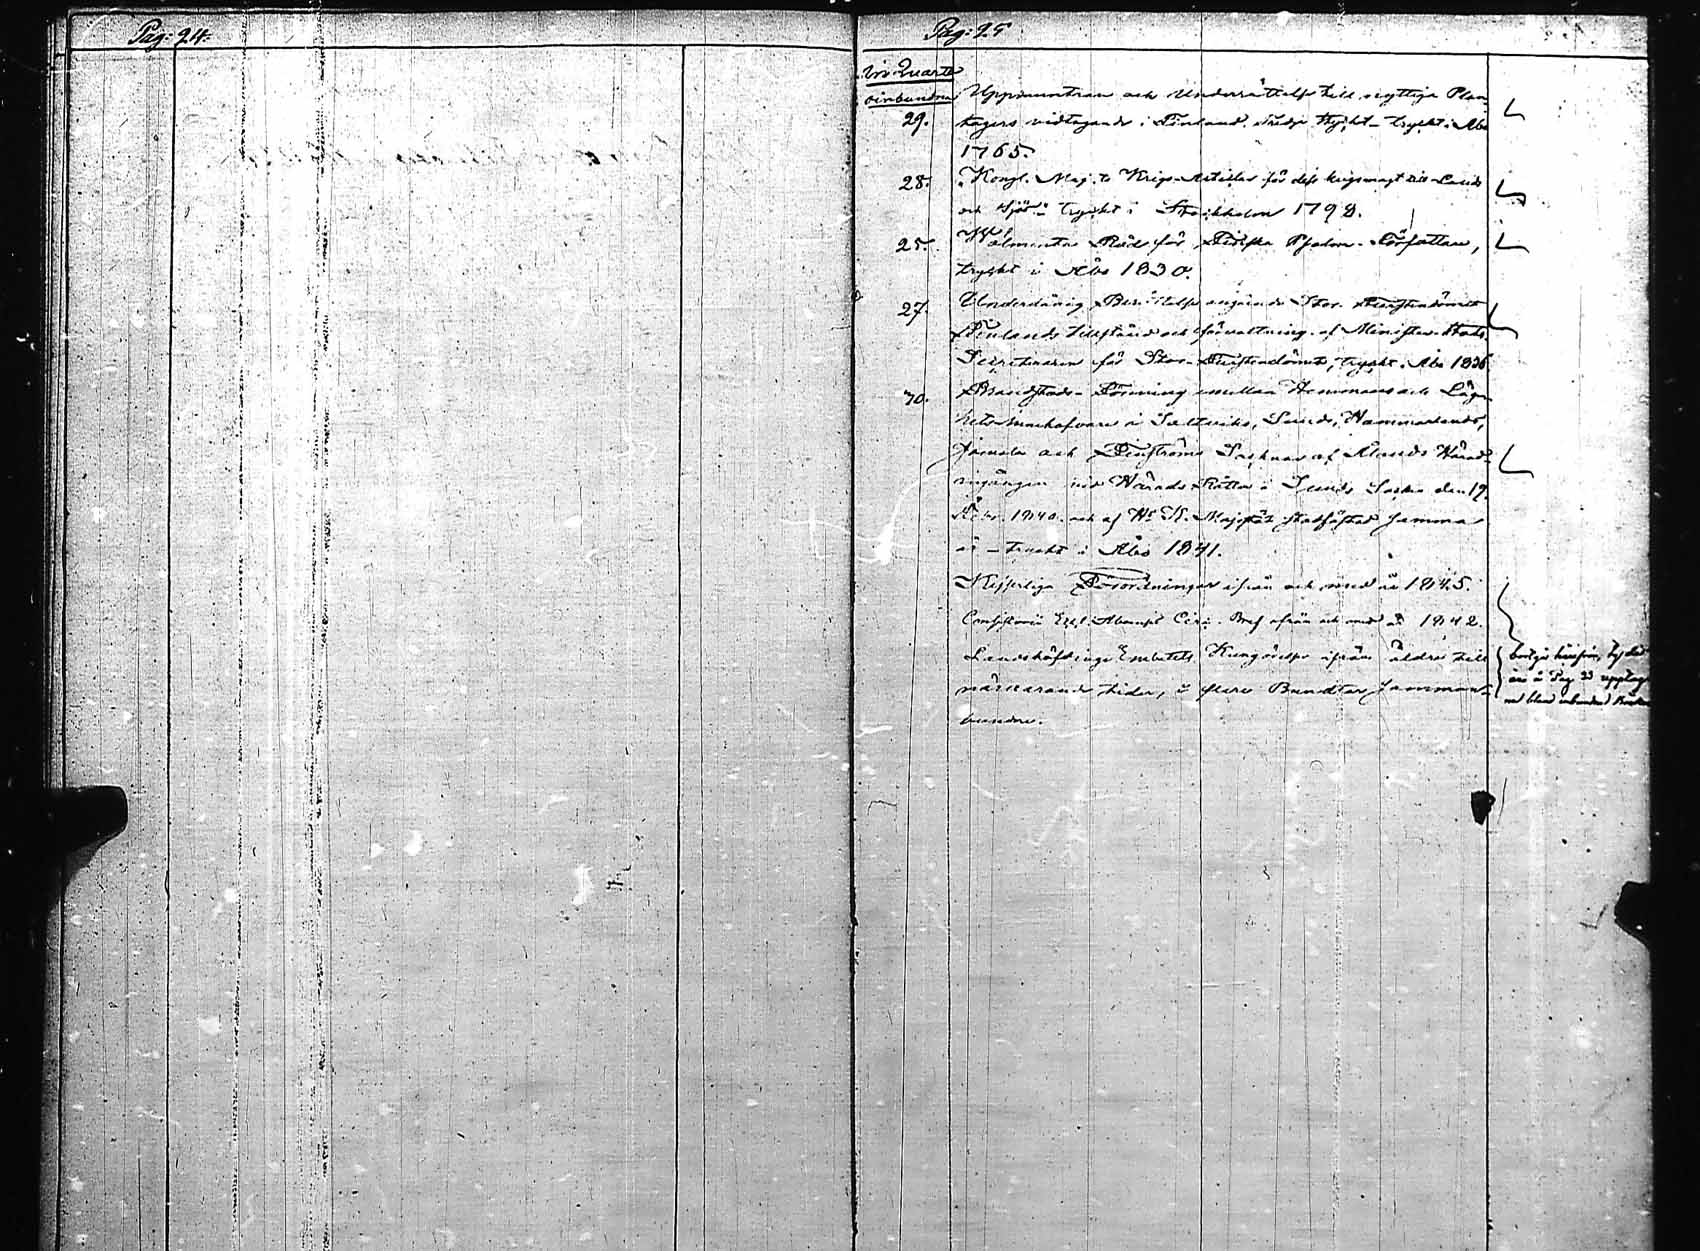 Pag: 24.
Pag: 25
in Quarto
oinbundna
29. Uppmuntran och Underrättelse till nyttiga Plan-
tagers vidtagande i Finland. Tredje Stycket – tryckt i Åbo
1765.
28. Kongl. Maj:ts Krigs-Artiklar för dess krigsmagt till Lands
och Sjös – tryckt i Stockholm 1798.
25. Välmenta Råd för Finska Psalm-Författare,
tryckt i Åbo 1830.
27. Underdånig Berättelse angående Stor-Furstendömet
Finlands tillstånd och förvaltning af Minister-Stats-
Secreteraren för Stor-Furstendömet, tryckt Åbo 1836
70. Brandstods-Förening emellan Hemmans och Läge-
hets Innehafvare i Saltviks, Sunds, Hammarlands,
Jomala och Finströms Socknar af Ålands Härad
ingången vid Härads Rätten i Sunds Socken den 19.
Febr. 1840. och af Hs K. Majestät stadfästad samma
år – tryckt i Åbo 1841.
Kejserliga Förordningar ifrån och med år 1845.
Consistorii Eccl. Aboensis Circ. Bref ifrån och med år 1842.
Landshöfdinge Embetets Kungörelser ifrån äldre till
närvarande tider, i flere Bundtar samman-
bundne.
borgå härifrån, ty de
äro å Pag 23 upptag
ne bland inbundna Böcker